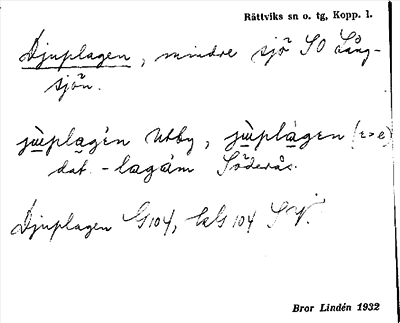 Rättviks sn o. tg, Kopp. l.
Djuplagen, mindre sjö SO Lång-
sjön.
jùplagén Utby, jùplàgen (z>e)
dat. -lagám Söderås.
Djuplagen G 104, EkG 104 SV.
Bror Lindén 1932